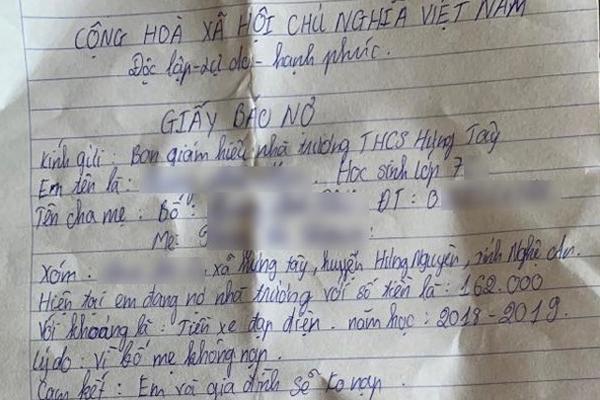 CỘNG HOÀ XÃ HỘI CHỦ NGHĨA VIỆT NAM
Độc lập - tự do - hạnh phúc.
GIẤY BÁO NỢ
Kính gửi : Ban giám hiệu nhà trường THCS Hưng Tây
Em tên là : Học sinh lớp 7
Tên cha mẹ : Bố : ĐT : 0
Mẹ :
Xóm . , xã Hưng tây, huyện Hưng Nguyên, tỉnh Nghệ An.
Hiện tại em đang nợ nhà trường với số tiền là : 162.000
Với khoảng là : Tiền xe đạp điện . năm học : 2018 - 2019.
Lý do : vì bố mẹ không nạp .
Cam kết : Em và gia đình sẽ ko nạp .